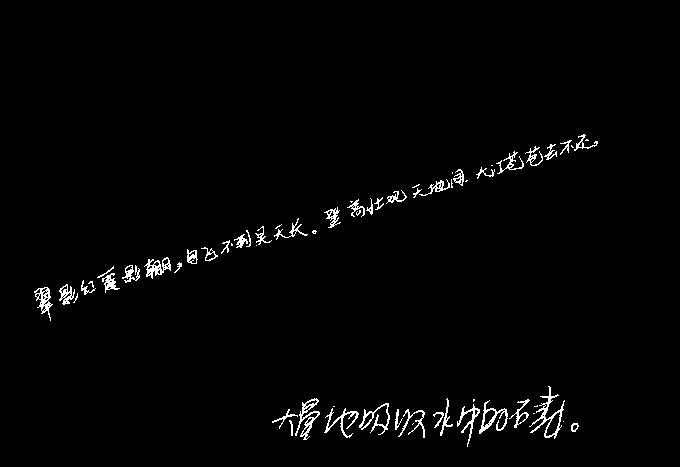 翠影红霞影朝日，鸟飞不到吴天长。登高壮观天地间 大江茫茫去不还。
大量地吸收水中的毒。